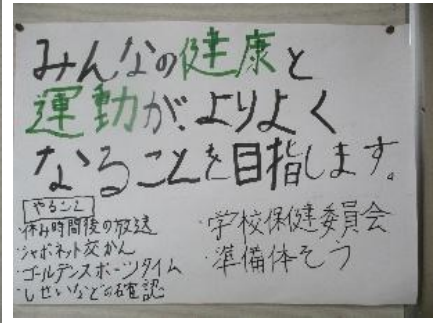 みんなの健康と
運動が、よりよく
なることを目指します。
やること
・休み時間後の放送
・シャボネット交かん
・ゴールデンスポーツタイム
・しせいなどの確認
・学校保健委員会
・準備体そう